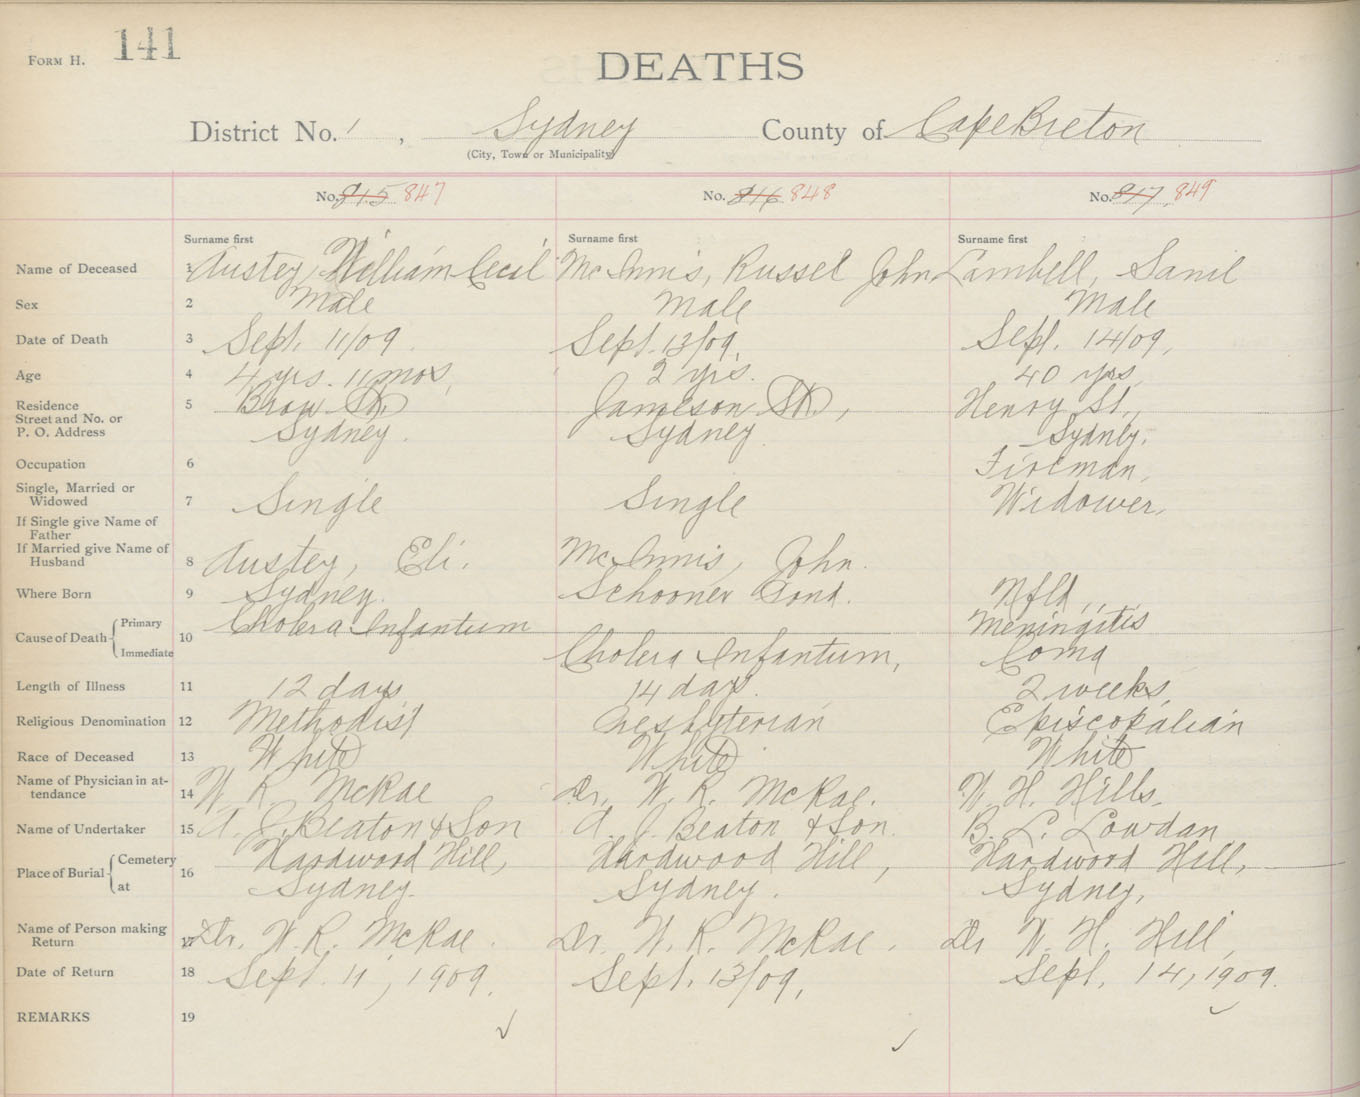 FORM H. 141
DEATHS
District No. 1, Sydney County of Cape Breton
(City, Town or Municipality)
No. 815 847 No. 816 848 No. 817 849
Surname first Surname first Surname first
Name of Deceased 1 Austey, William Cecil McInnis, Russel John Lambell, Samil
Sex 2 Male Male Male
Date of Death 3 Sept. 11/09 Sept. 13/09. Sept. 14/09,
Age 4 4 yrs. 11 mos, 2 yrs. 40 yrs,
Residence 5 Brow St. Jameson St, Henry St.,
Street and No. or
P. O. Address Sydney. Sydney. Sydney.
Occupation 6 Fireman,
Single, Married or
Widowed 7 Single Single Widower,
If Single give Name of
Father
If Married give Name of
Husband 8 Austey, Eli. McInnis, John.
Where Born 9 Sydney. Schooner Pond. Nfld,
Cause of Death Primary 10 Cholera Infantum Meningitis
Immediate Cholera Infantum, Coma
Length of Illness 11 12 days 14 days. 2 weeks,
Religious Denomination 12 Methodist Presbyterian Episcopalian
Race of Deceased 13 White White White
Name of Physician in at-
tendance 14 W R McRae Dr. W. R. McRae. W. H. Hills.
Name of Undertaker 15 A. J. Beaton & Son A. J. Beaton & Son. B. L. Lowdan
Place of Burial Cemetery 16 Hardwood Hill, Hardwood Hill, Hardwood Hill,
at Sydney. Sydney. Sydney,
Name of Person making
Return 17 Dr. W. R. McRae. Dr. W. R. McRae. Dr W. H. Hill,
Date of Return 18 Sept. 11, 1909. Sept. 13/09, Sept. 14, 1909.
REMARKS 19